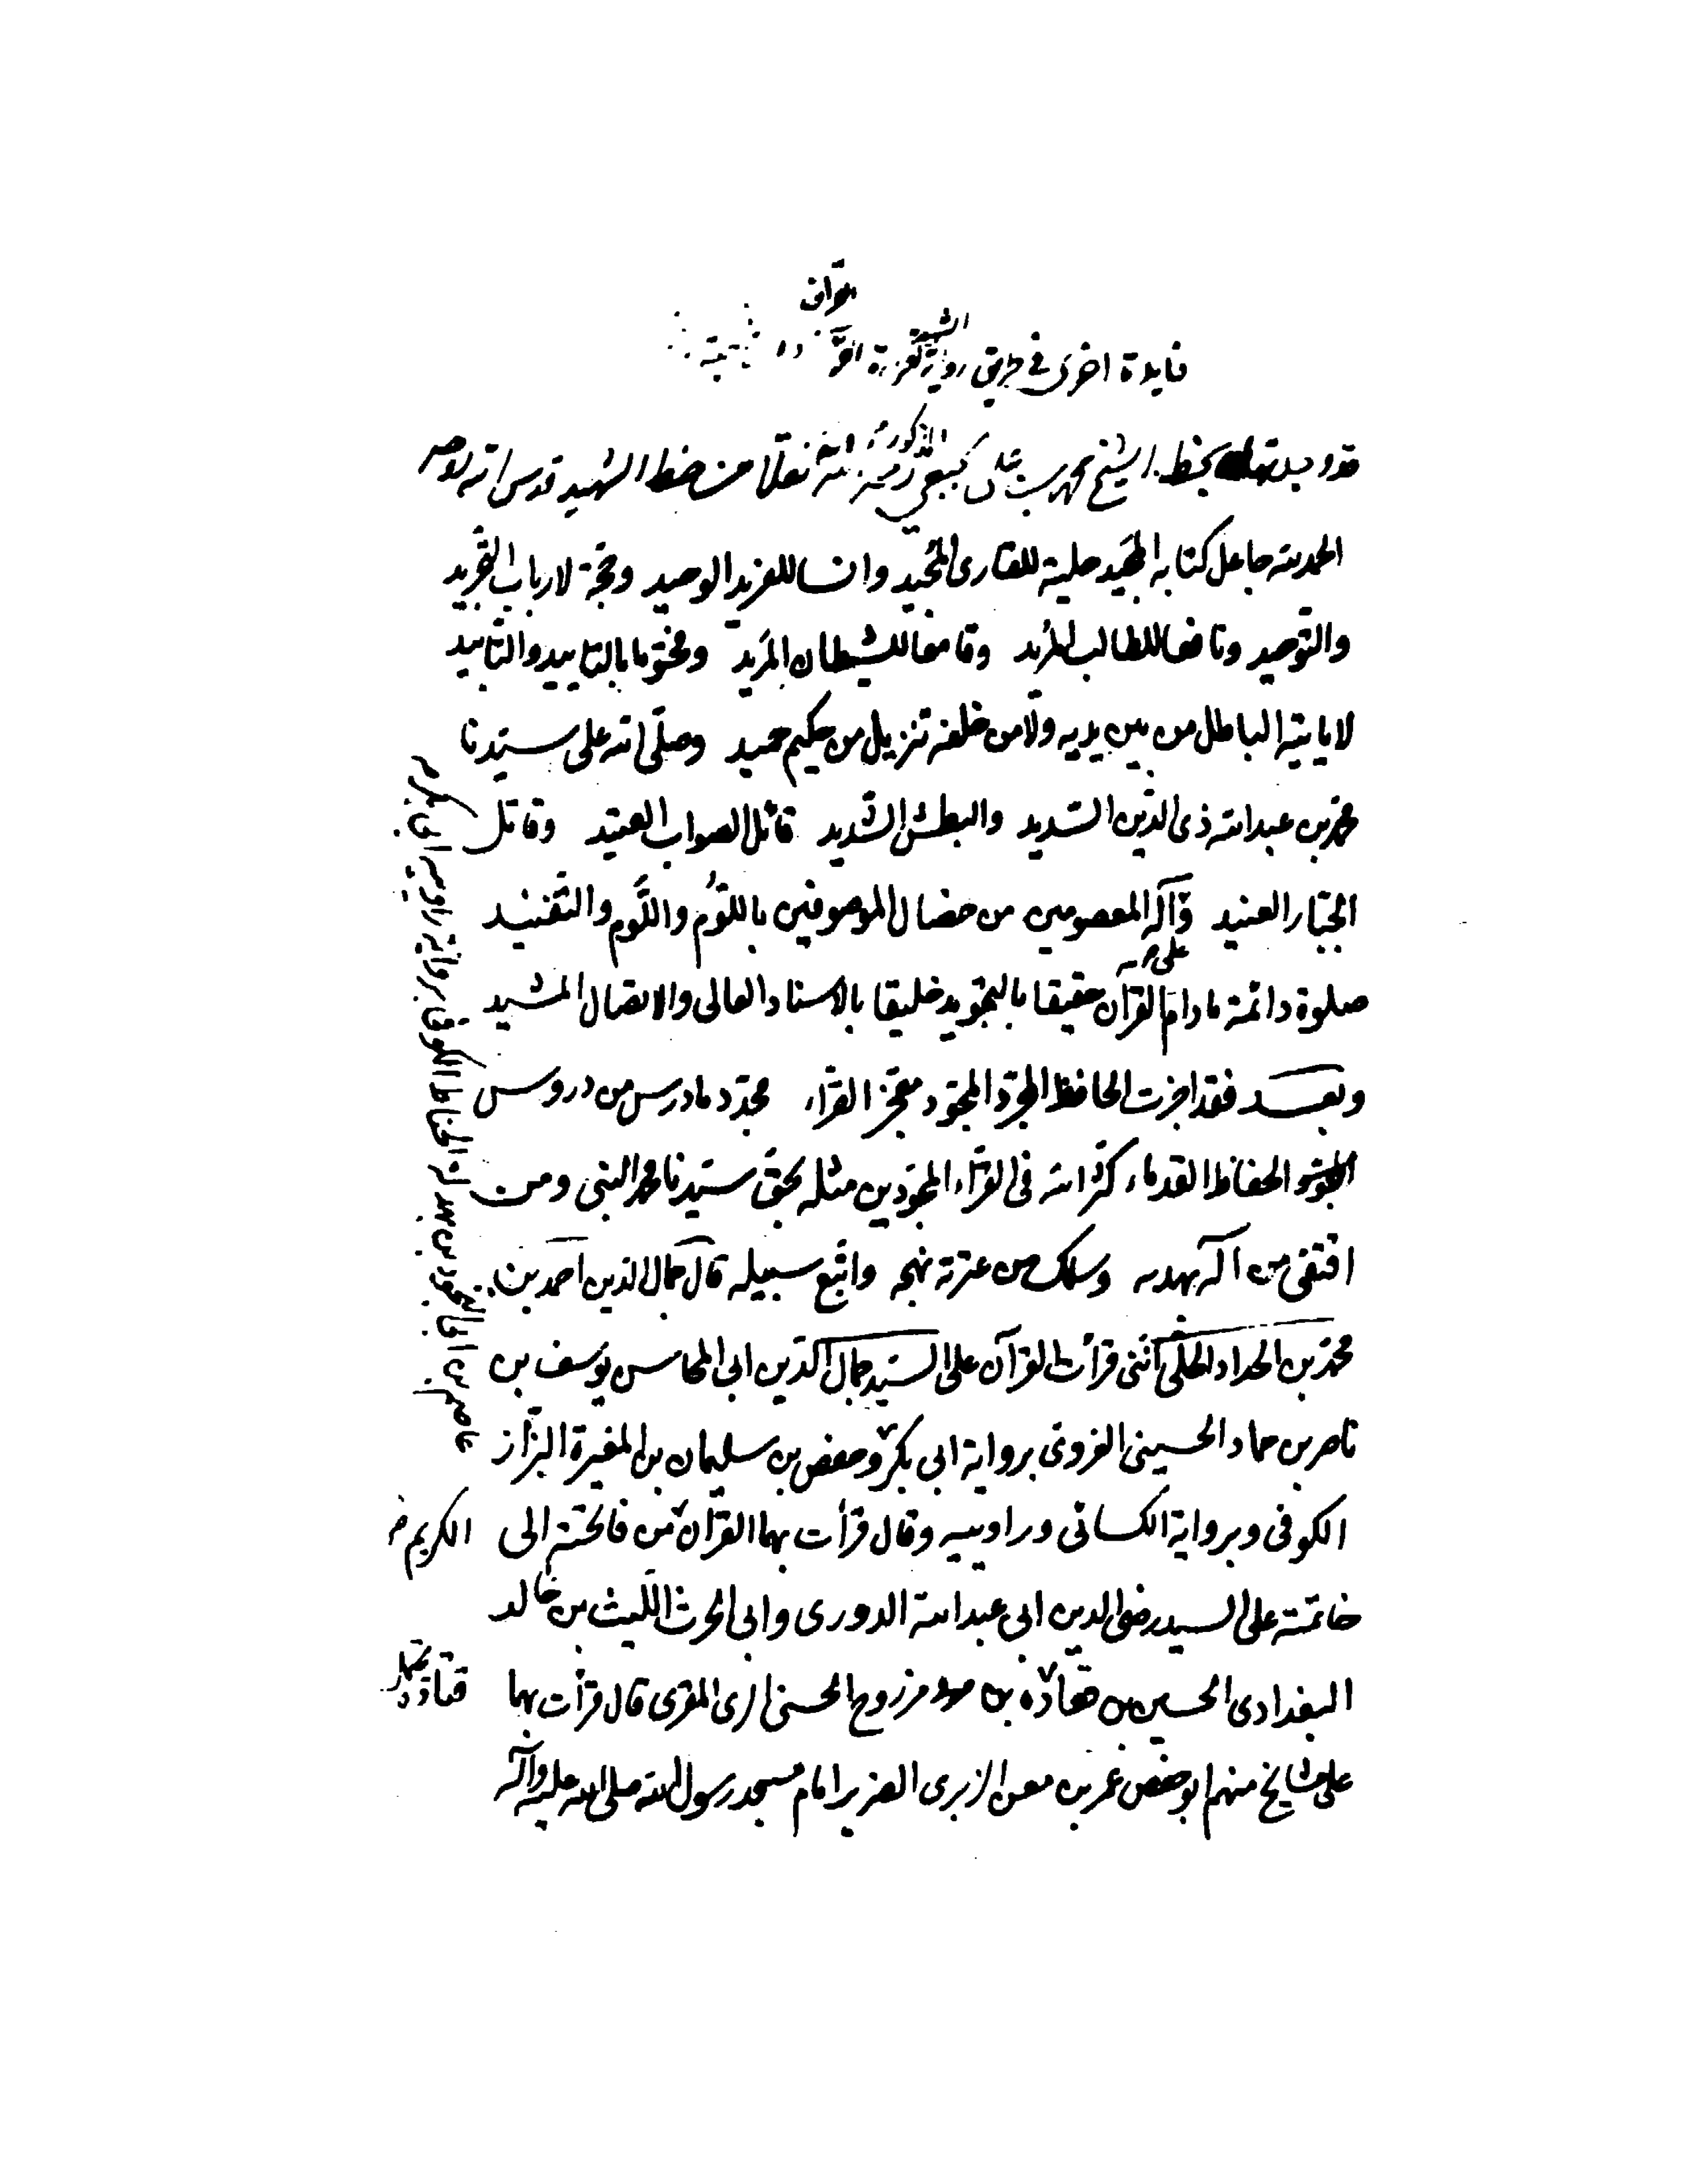 فايدة اخرى في طريق رواية الشهيد
قد وجدتها بخط الشيخ محمد بن علي الجبعي المذكور نقلا من خط الشهيد قدس الله روحه
الحمد لله جاعل كتابه المجيد حلية للقارئ المجيد وانسا للفريد الوحيد وحجة لارباب التجريد
والتوحيد ونافعا للطالب المريد وقامعا للشيطان المريد ومختوما بالتاييد والتابيد
لا ياتيه الباطل من بين يديه ولا من خلفه تنزيل من حكيم حميد وصلى الله على سيدنا
محمد بن عبد الله ذي الدين السديد والبطش الشديد قائل الصواب العتيد وقاتل
الجبار العنيد وآله المعصومين من خصال الموصوفين باللؤم واللوم والتفنيد
صلوة دائمة ما دام القرآن حقيقا بالتجويد خليقا بالاسناد العالى والاتصال المشيد
وبعد فقد اجزت الحافظ المجرد المجود مفخر القراء مجدد ما درس من دروس
الحفاظ القدماء كثر الله في القراء المجودين مثله بحق سيدنا محمد النبي ومن
اقتفى من آله بهديه وسلك من عترته نهجه واتبع سبيله قال جمال الدين احمد بن
محمد بن الحداد الحلي اننى قرأت القرآن على السيد جمال الدين ابى المحاسن يوسف بن
ناصر بن حماد الحسينى الغروى برواية ابى بكر وحفص بن سليمان بن المغيرة البزاز
الكوفى وبرواية الكسائى وراوييه وقال قرأت بهما القرآن من فاتحته الى
الكريم
خاتمته على السيد رضى الدين ابى عبد الله الدورى وابى الحرث الليث بن خالد
البغدادى الحسين بن قتادة بن مزروع الحسنى المقرى قال قرأت بهما
قتادة
على مشايخ منهم ابو حفص عمر بن معن الزبرى الضرير امام مسجد رسول الله صلى الله عليه وآله
عاصم بن ابى النجود بن بهدلة الحناط الكوفى برواية راوييه ابى بكر